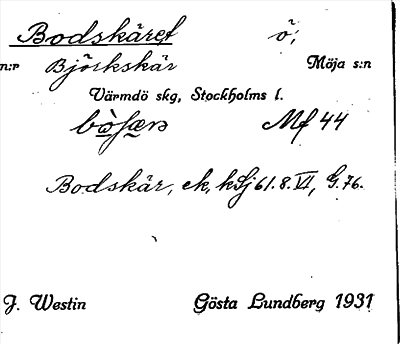 Bodskäret ö,
n:r Björkskär Möja s:n
Värmdö skg, Stockholms l.
Mf 44
Bodskär, ek, kSj 61.8.VI, G.76.
J. Westin Gösta Lundberg 1931